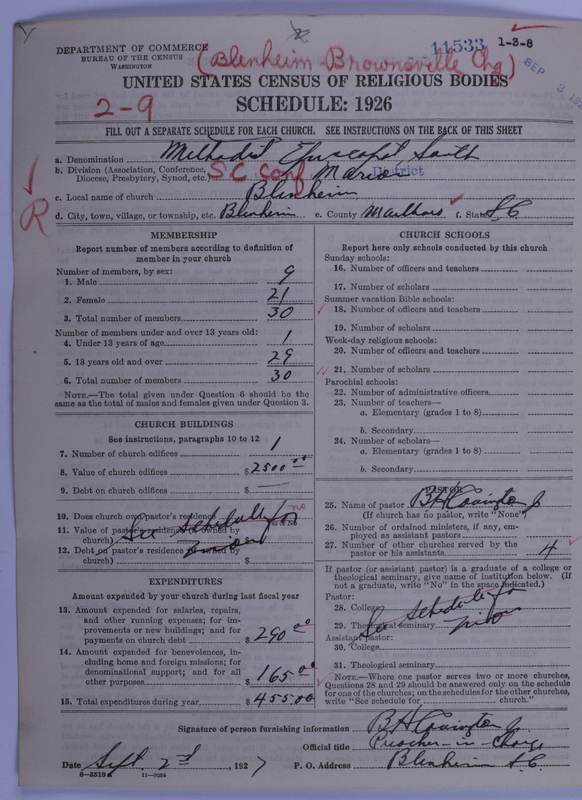 DEPARTMENT OF COMMERCE
BUREAU OF THE CENSUS
WASHINGTON
(Blenheim Brownsville Chg)
11533
1-3-8
SEP 3 192
UNITED STATES CENSUS OF RELIGIOUS BODIES
2-9
SCHEDULE: 1926
FILL OUT A SEPARATE SCHEDULE FOR EACH CHURCH. SEE INSTRUCTIONS ON THE BACK OF THIS SHEET
a. Denomination Methodist Episcopal South
b. Division (Association, Conference, Diocese, Presbytery, Synod, etc.) S C Conf Marion District
c. Local name of church Blenheim
R
d. City, town, village, or township, etc. Blenheim e. County Marlboro f. State S.C.
MEMBERSHIP
Report number of members according to definition of member in your church
Number of members, by sex:
1. Male 9
2. Female 21
3. Total number of members 30
Number of members under and over 13 years old:
4. Under 13 years of age 1
5. 13 years old and over 29
6. Total number of members 30
NOTE.—The total given under Question 6 should be the same as the total of males and females given under Question 3.
CHURCH BUILDINGS
See instructions, paragraphs 10 to 12
7. Number of church edifices 1
8. Value of church edifices $ 2500 00
9. Debt on church edifices $ —
10. Does church own pastor's residence no
11. Value of pastor's residence (if owned by church) See Schedule for
12. Debt on pastor's residence (if owned by church) $
EXPENDITURES
Amount expended by your church during last fiscal year
13. Amount expended for salaries, repairs, and other running expenses; for improvements or new buildings; and for payments on church debt $ 290 00
14. Amount expended for benevolences, including home and foreign missions; for denominational support; and for all other purposes $ 165 00
15. Total expenditures during year $ 455.00
CHURCH SCHOOLS
Report here only schools conducted by this church
Sunday schools:
16. Number of officers and teachers
17. Number of scholars
Summer vacation Bible schools:
18. Number of officers and teachers
19. Number of scholars
Week-day religious schools:
20. Number of officers and teachers
21. Number of scholars
Parochial schools:
22. Number of administrative officers
23. Number of teachers—
a. Elementary (grades 1 to 8)
b. Secondary
24. Number of scholars—
a. Elementary (grades 1 to 8)
b. Secondary
PASTOR
25. Name of pastor B H Covington Jr
(If church has no pastor, write "None")
26. Number of ordained ministers, if any, employed as assistant pastors
27. Number of other churches served by the pastor or his assistants 4
If pastor (or assistant pastor) is a graduate of a college or theological seminary, give name of institution below. (If not a graduate, write "No" in the space indicated.)
Pastor:
28. College
29. Theological seminary See Schedule for
Assistant pastor:
30. College
31. Theological seminary
NOTE.—Where one pastor serves two or more churches, Questions 28 and 29 should be answered only on the schedule for one of the churches; on the schedules for the other churches, write "See schedule for church."
Signature of person furnishing information B H Covington Jr
Official title Preacher-in-Charge
Date Sept. 2nd, 1927 P. O. Address Blenheim S.C.
8-5518a 11-9034